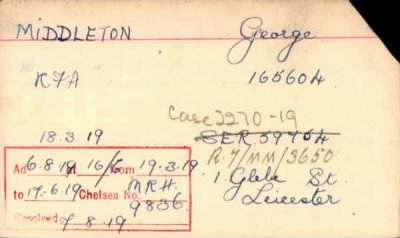 MIDDLETON George
RFA 165604
Case 2270-19
18.3.19 SER 59454
R. 7/MM/3650
Ad 6.8.19 at 16/6 Com 19.3.19
to 17.6.19 Chelsea No. MRH. 9836
Received 7.8.19
1. Glebe St.
Leicester